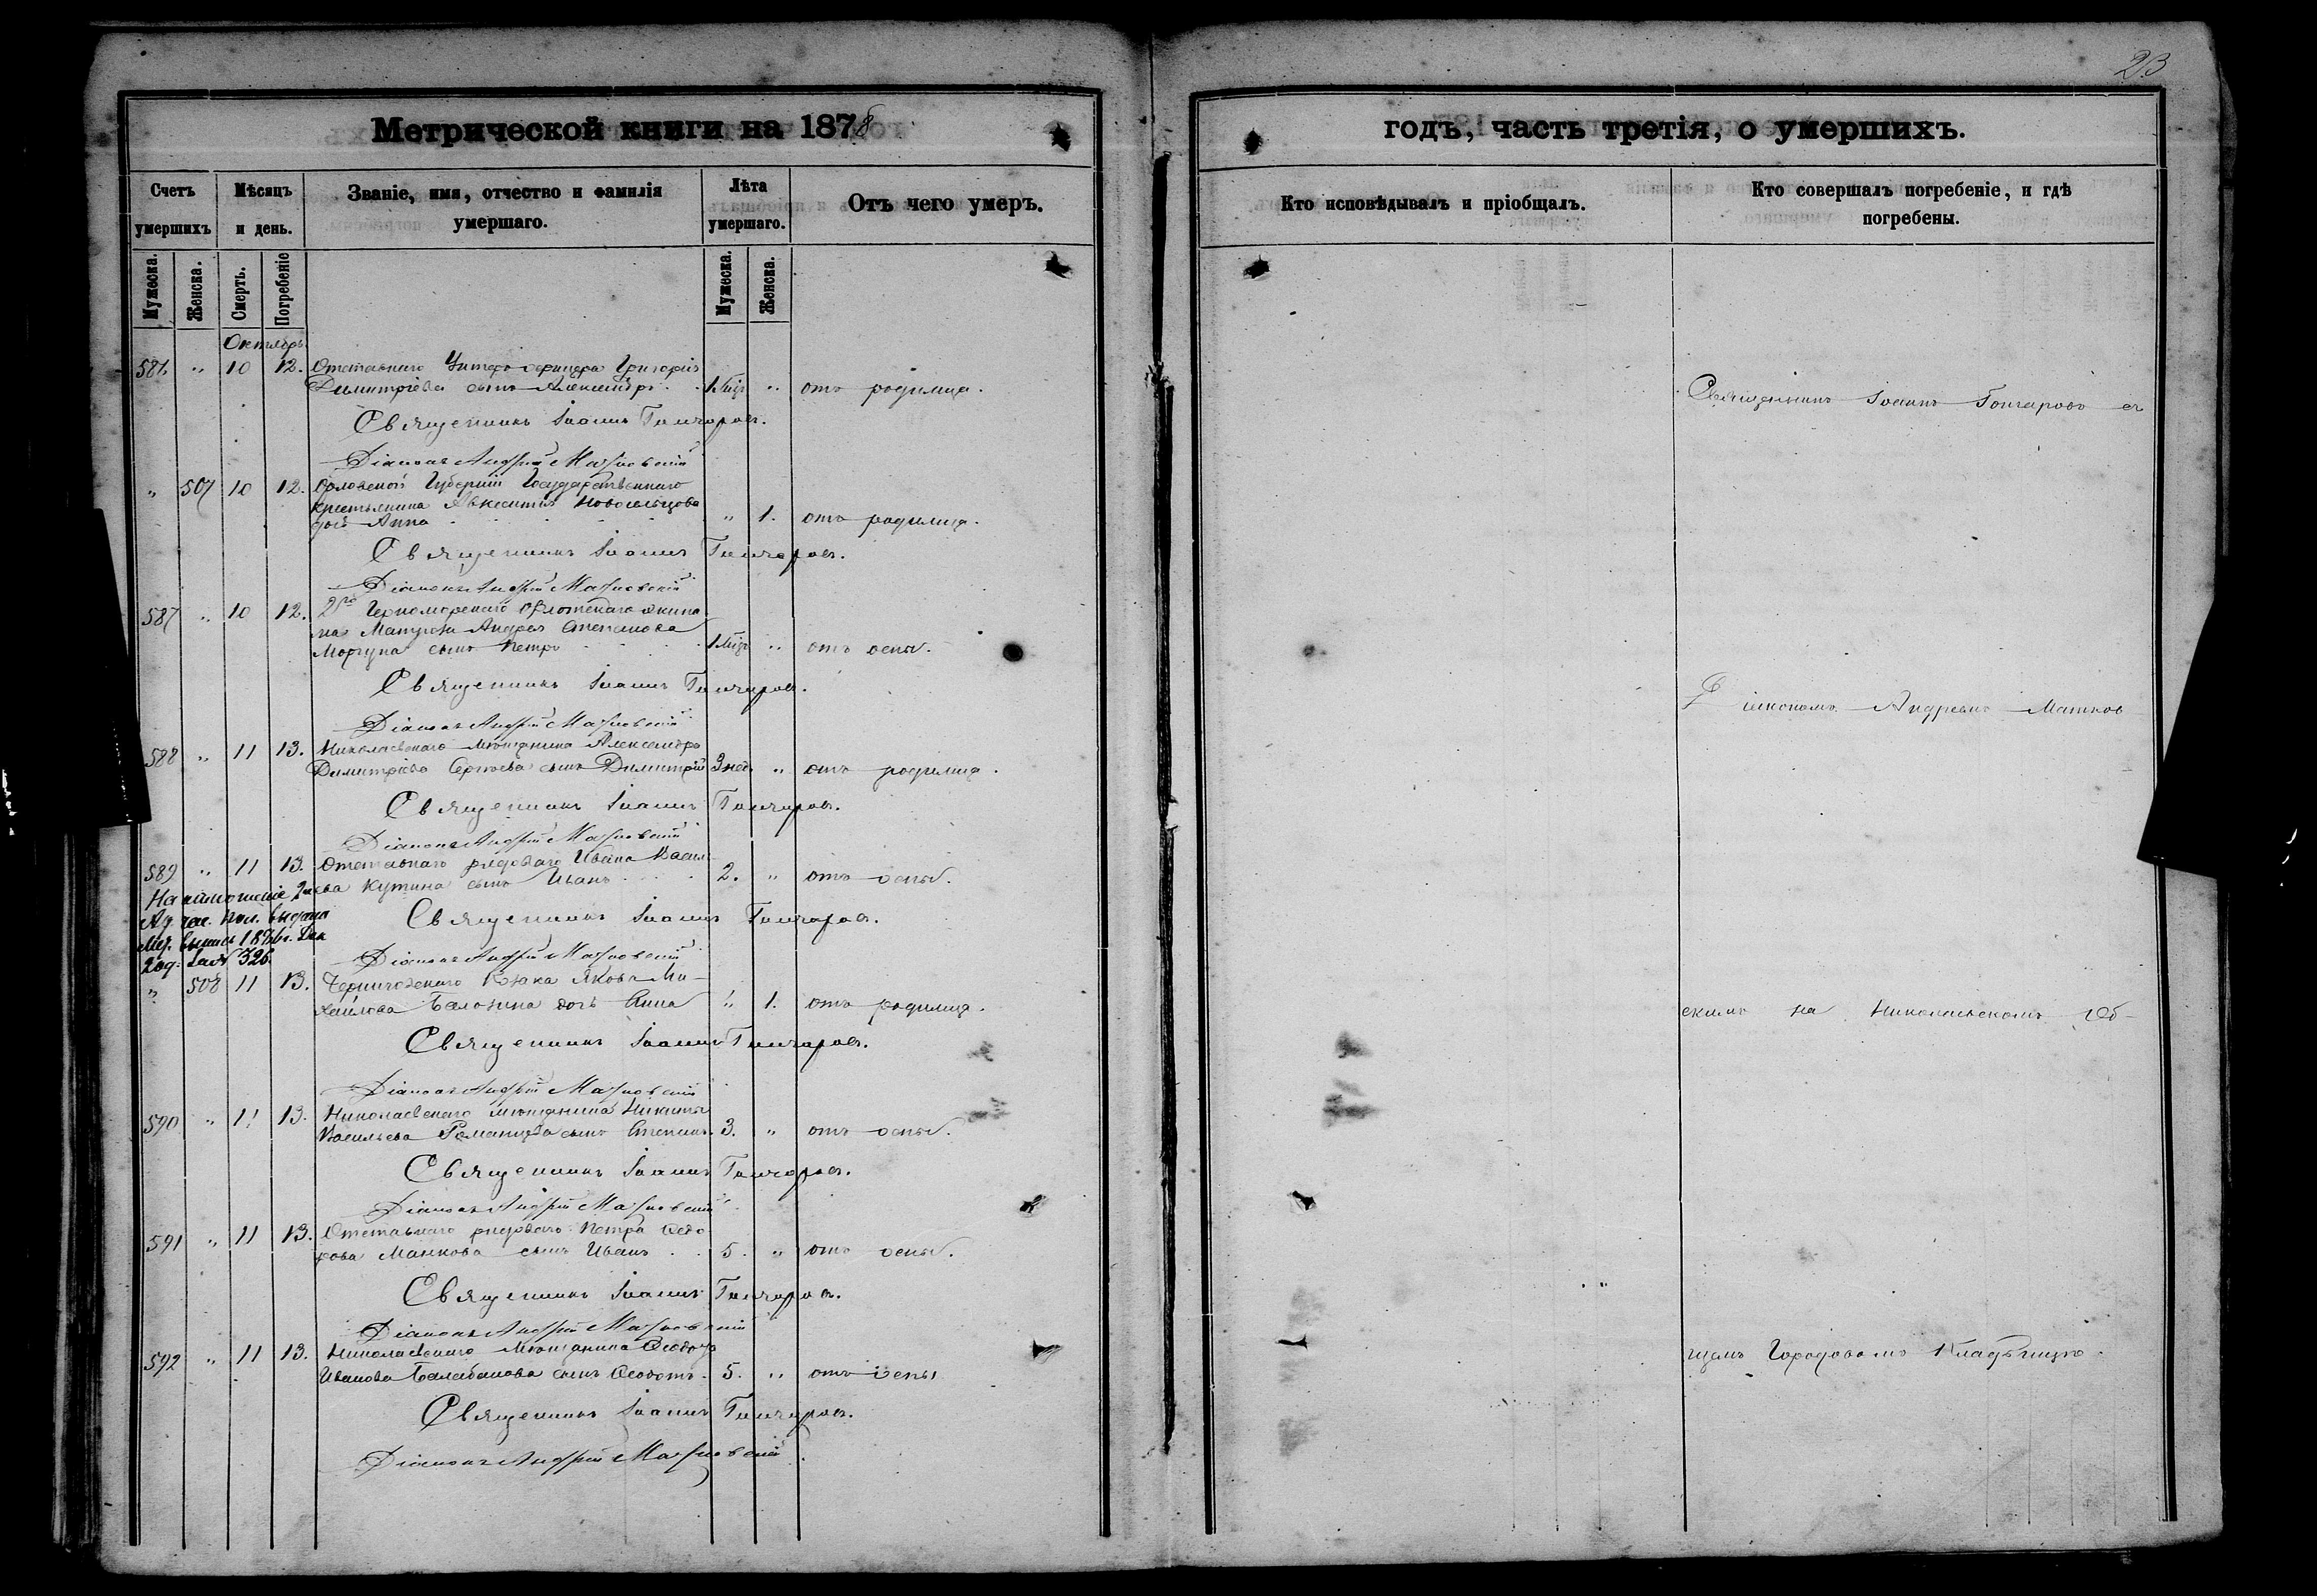 23
Метрической книги на 1878
годъ, часть третія, о умершихъ.
Счетъ умершихъ
Мѣсяцъ и день.
Званіе, имя, отчество и фамилія умершаго.
Лѣта умершаго.
Отъ чего умеръ.
Кто исповѣдывалъ и пріобщалъ.
Кто совершалъ погребеніе, и гдѣ погребены.
Мужеска.
Женска.
Смерть.
Погребеніе
Мужеска.
Женска.
Октябрь
586 " 10 12. Отставнаго Унтеръ офицера Григорія
Димитріева сынъ Александръ . 1 Міц " отъ родимца.
Священникъ Іоаннъ Гончаровъ.
Діаконъ Андрей Матковскій
" 507 10 12. Орловской Губерніи Государственнаго
крестьянина Авксентія Новосельцова
дочь Анна " 1. отъ родимца.
Священникъ Іоаннъ Гончаровъ.
Діаконъ Андрей Матковскій
587 " 10 12. 2го Черноморскаго Флотскаго экипа
жа Матроса Андрея Степанова
Моргуна сынъ Петръ 1 Міц " отъ оспы.
Священникъ Іоаннъ Гончаровъ.
Діаконъ Андрей Матковскій
588 " 11 13. Николаевскаго мѣщанина Александра
Димитріева Сергѣева сынъ Димитрій 3 нед. " отъ родимца.
Священникъ Іоаннъ Гончаровъ.
Діаконъ Андрей Матковскій
589 " 11 13. Отставнаго рядоваго Ивана Василь
ева Кутина сынъ Иванъ 2. " отъ оспы.
Священникъ Іоаннъ Гончаровъ.
Діаконъ Андрей Матковскій
На отношеніе 2й
Ад. час. пол. выдана
326.
" 508 11 13. Черниговскаго Якова Ми-
хайлова дочь Анна " 1. отъ родимца.
Священникъ Іоаннъ Гончаровъ.
Діаконъ Андрей Матковскій
590 " 11 13. Николаевскаго мѣщанина Никиты
Васильева сынъ Степанъ. 3. " отъ оспы.
Священникъ Іоаннъ Гончаровъ.
Діаконъ Андрей Матковскій
591 " 11 13. Отставнаго рядоваго Петра Ѳедо
рова Манкова сынъ Иванъ . . 5. " отъ оспы.
Священникъ Іоаннъ Гончаровъ.
Діаконъ Андрей Матковскій
592 " 11 13. Николаевскаго Мѣщанина Ѳеодота
Иванова Балабанова сынъ Ѳеодотъ. 5. " отъ оспы
Священникъ Іоаннъ Гончаровъ.
Діаконъ Андрей Матковскій
Священникъ Іоаннъ Гончаровъ съ
Діакономъ Андреемъ Матков
скимъ на Николаевскомъ Об-
щемъ Городовомъ Кладбищѣ.